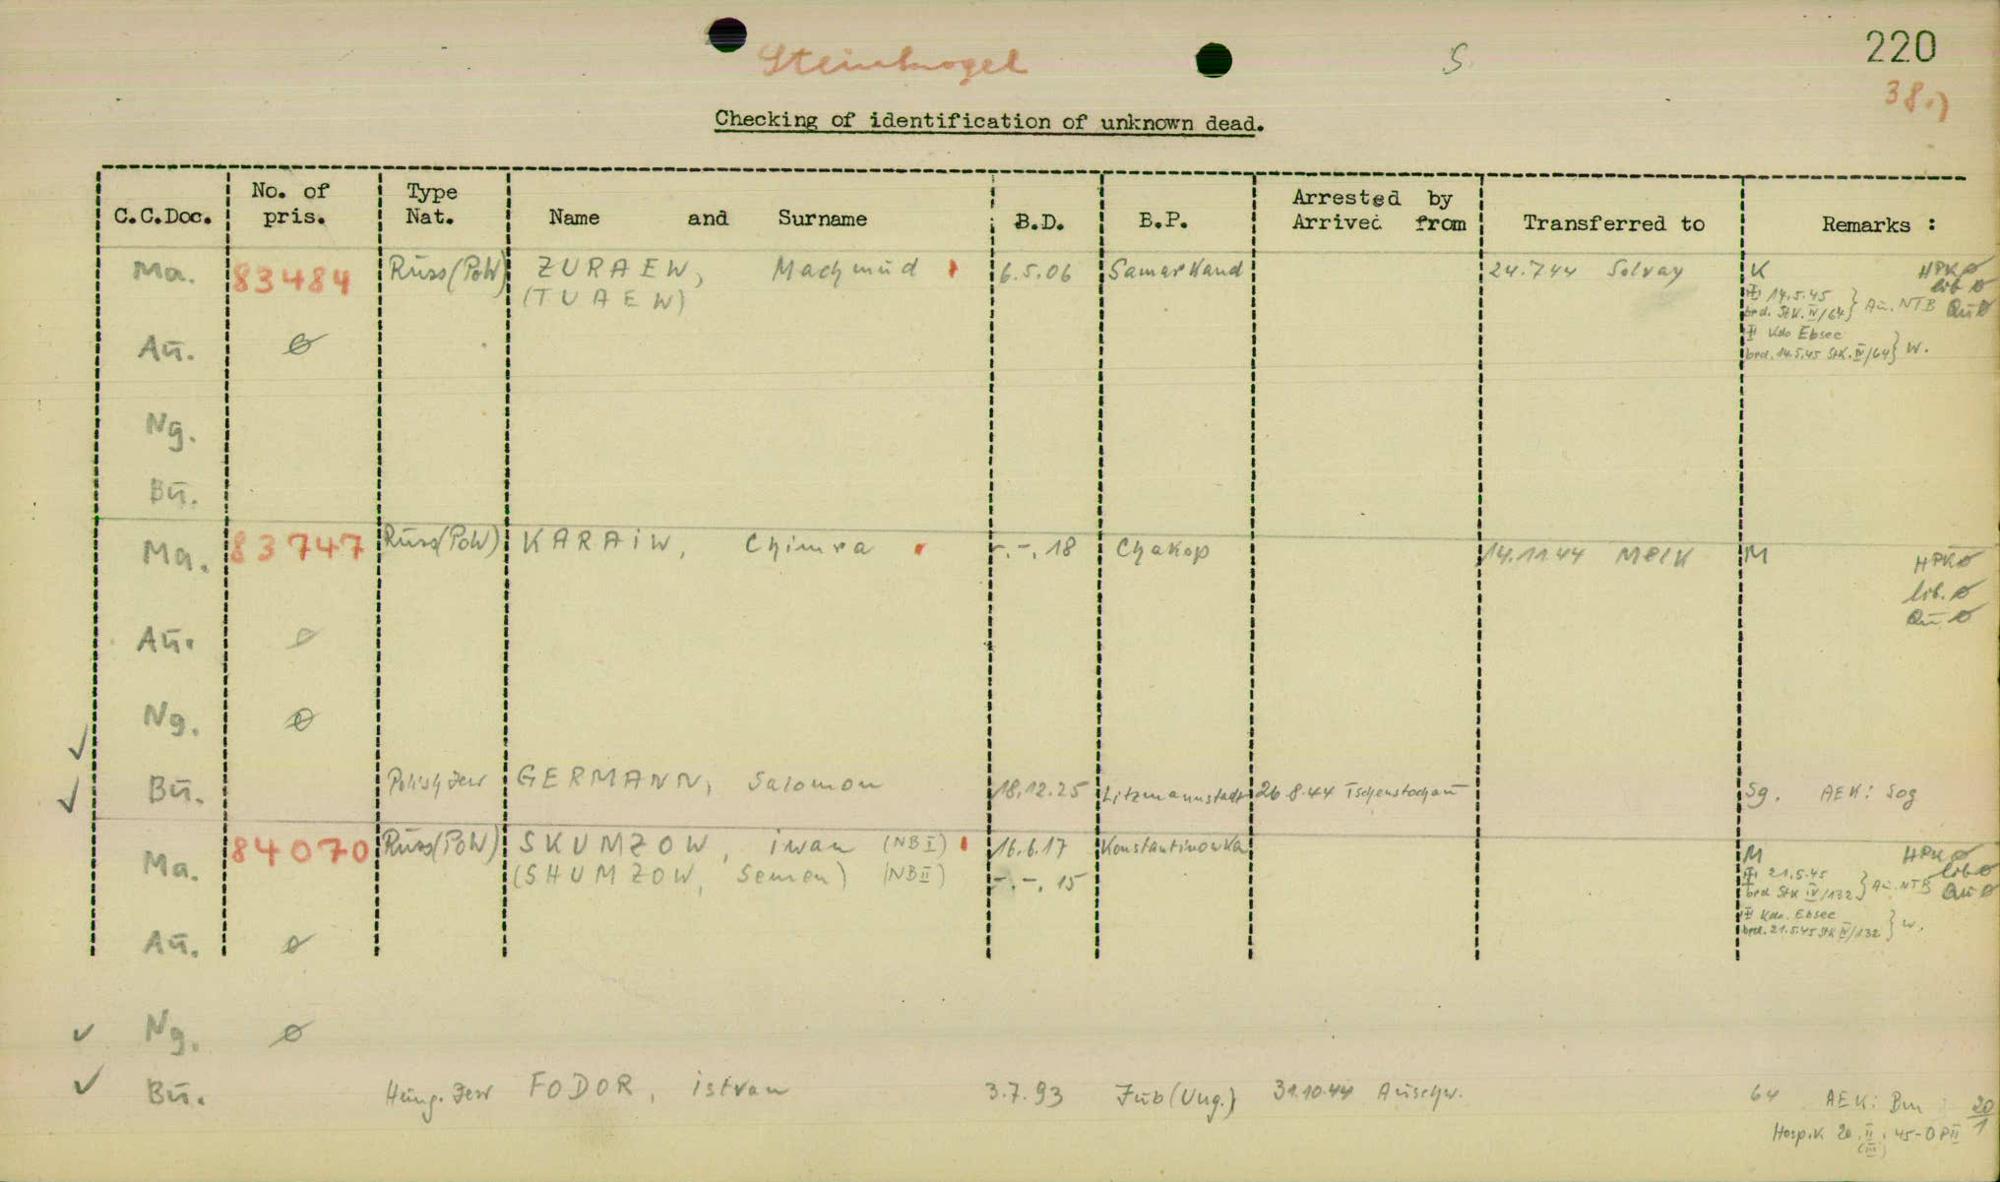 Steinkogel S 220
38.)
Checking of identification of unknown dead.
C.C.Doc. No. of pris. Type Nat. Name and Surname B.D. B.P. Arrested by Arrived from Transferred to Remarks :
Ma. 83484 Russ(PoW) ZURAEW, Machmud 6.5.06 Samarkand 24.7.44 Solvay K HPK ø
(TUAEW) lib ø
14.5.45 } Aū. NTB Qū ø
brd. StK. IV/64
Aū. ø Kdo Ebsee
brd. 14.5.45 StK. IV/64 } W.
Ng.
Bū.
Ma. 83747 Russ(PoW) KARAIW, Chimra -.-.18 Chakop 14.11.44 Melk M HPK ø
lib. ø
Qū ø
Aū. ø
Ng. ø
Bū. Polish Jew GERMANN, Salomon 18.12.25 Litzmannstadt 26.8.44 Tschenstochau Sg. AEK: Sog
Ma. 84070 Russ(PoW) SKUMZOW, iwan (NB I) 16.6.17 Konstantinowka M HPK ø
(SHUMZOW, Semen) (NB II) -.-.15 21.5.45 lib ø
brd StK IV/132 } Aū. NTB Qū ø
Kdo. Ebsee
Aū. ø brd. 21.5.45 StK IV/132 } W.
Ng. ø
Bū. Hung. Jew FODOR, istvan 3.7.93 Jub (Ung.) 31.10.44 Auschw. 64 AEK: Bm 20/1
Hosp.K 20.II.45-
(III)